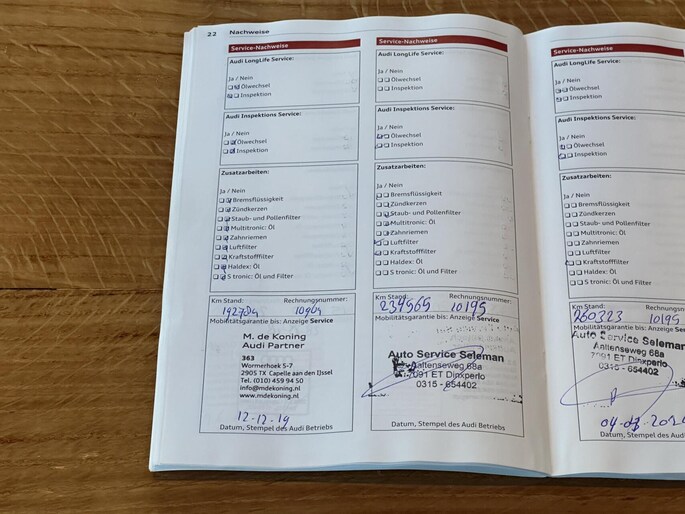 22 Nachweise
Service-Nachweise
Audi LongLife Service:
Ja / Nein
Ölwechsel
Inspektion
Audi Inspektions Service:
Ja / Nein
Ölwechsel
Inspektion
Zusatzarbeiten:
Ja / Nein
Bremsflüssigkeit
Zündkerzen
Staub- und Pollenfilter
Multitronic: Öl
Zahnriemen
Luftfilter
Kraftstofffilter
Haldex: Öl
S tronic: Öl und Filter
Km Stand: Rechnungsnummer:
Mobilitätsgarantie bis: Anzeige Service
M. de Koning
Audi Partner
363
Wormerhoek 5-7
2905 TX Capelle aan den IJssel
Tel. (010) 459 94 50
info@mdekoning.nl
www.mdekoning.nl
12-12-19
Datum, Stempel des Audi Betriebs
Service-Nachweise
Audi LongLife Service:
Ja / Nein
Ölwechsel
Inspektion
Audi Inspektions Service:
Ja / Nein
Ölwechsel
Inspektion
Zusatzarbeiten:
Ja / Nein
Bremsflüssigkeit
Zündkerzen
Staub- und Pollenfilter
Multitronic: Öl
Zahnriemen
Luftfilter
Kraftstofffilter
Haldex: Öl
S tronic: Öl und Filter
Km Stand: Rechnungsnummer:
234569 10195
Mobilitätsgarantie bis: Anzeige Service
Auto Service Seleman
Aaltenseweg 68a
7091 ET Dinxperlo
0315 - 654402
Datum, Stempel des Audi Betriebs
Service-Nachweise
Audi LongLife Service:
Ja / Nein
Ölwechsel
Inspektion
Audi Inspektions Service:
Ja / Nein
Ölwechsel
Inspektion
Zusatzarbeiten:
Ja / Nein
Bremsflüssigkeit
Zündkerzen
Staub- und Pollenfilter
Multitronic: Öl
Zahnriemen
Luftfilter
Kraftstofffilter
Haldex: Öl
S tronic: Öl und Filter
Km Stand: Rechnungsnummer:
260323 10195
Mobilitätsgarantie bis: Anzeige
Auto Service Seleman
Aaltenseweg 68a
7091 ET Dinxperlo
0315 - 654402
Datum, Stempel des Audi